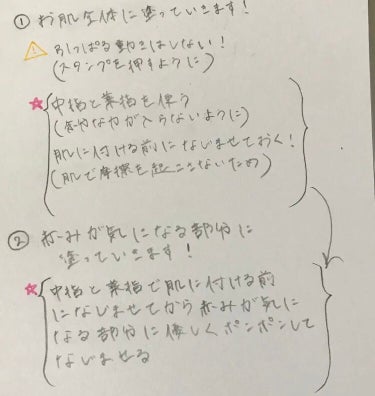 ① お肌全体に塗っていきます!
⚠ 引っぱる動きはしない!
(スタンプを押すように)
☆ 中指と薬指を使う
(余分な力が入らないように)
肌に付ける前になじませておく!
(肌で摩擦を起こさないため)
② 赤みが気になる部分に
塗っていきます!
☆ 中指と薬指で肌に付ける前
になじませてから赤みが気に
なる部分に優しくポンポンして
なじませる